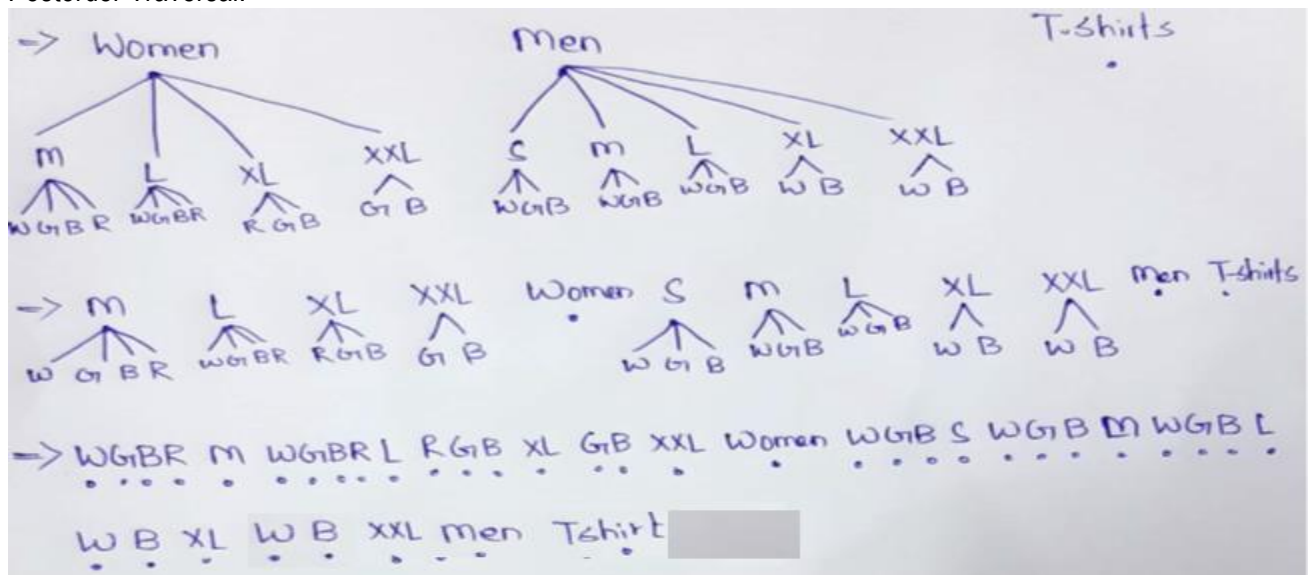 => Women Men T-Shirts
M L XL XXL S M L XL XXL
WGBR WGBR RGB GB WGB WGB WGB WB WB
=> M L XL XXL Women S M L XL XXL Men T-shirts
W G BR WGBR RGB G B W G B WGB WGB W B W B
=> WGBR M WGBR L RGB XL GB XXL Women WGB S WGB M WGB L
W B XL W B XXL men Tshirt